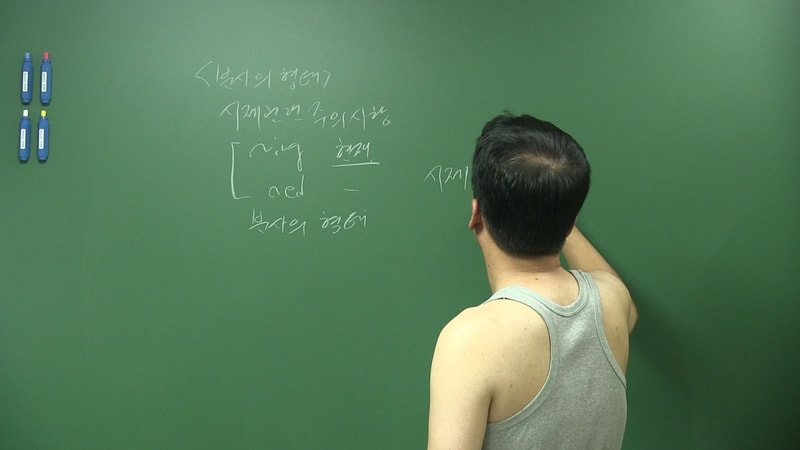 <분사의 형태>
시제관련 주의사항
~ing 현재
~ed -
분사의 형태
시제